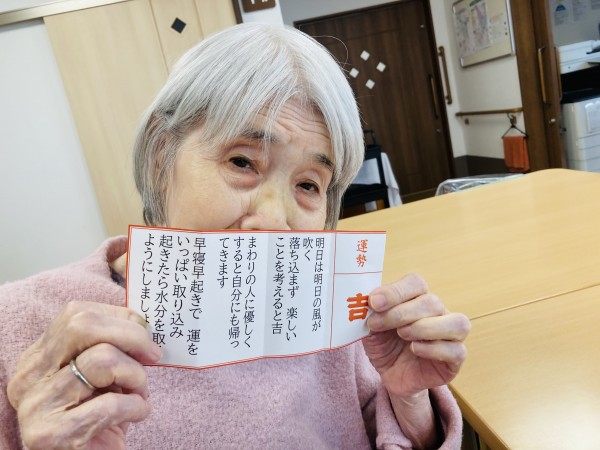 運勢
吉
明日は明日の風が
吹く
落ち込まず 楽しい
ことを考えると吉
まわりの人に優しく
すると自分にも帰っ
てきます
早寝早起きで 運を
いっぱい取り込み
起きたら水分を取
ようにしましょ